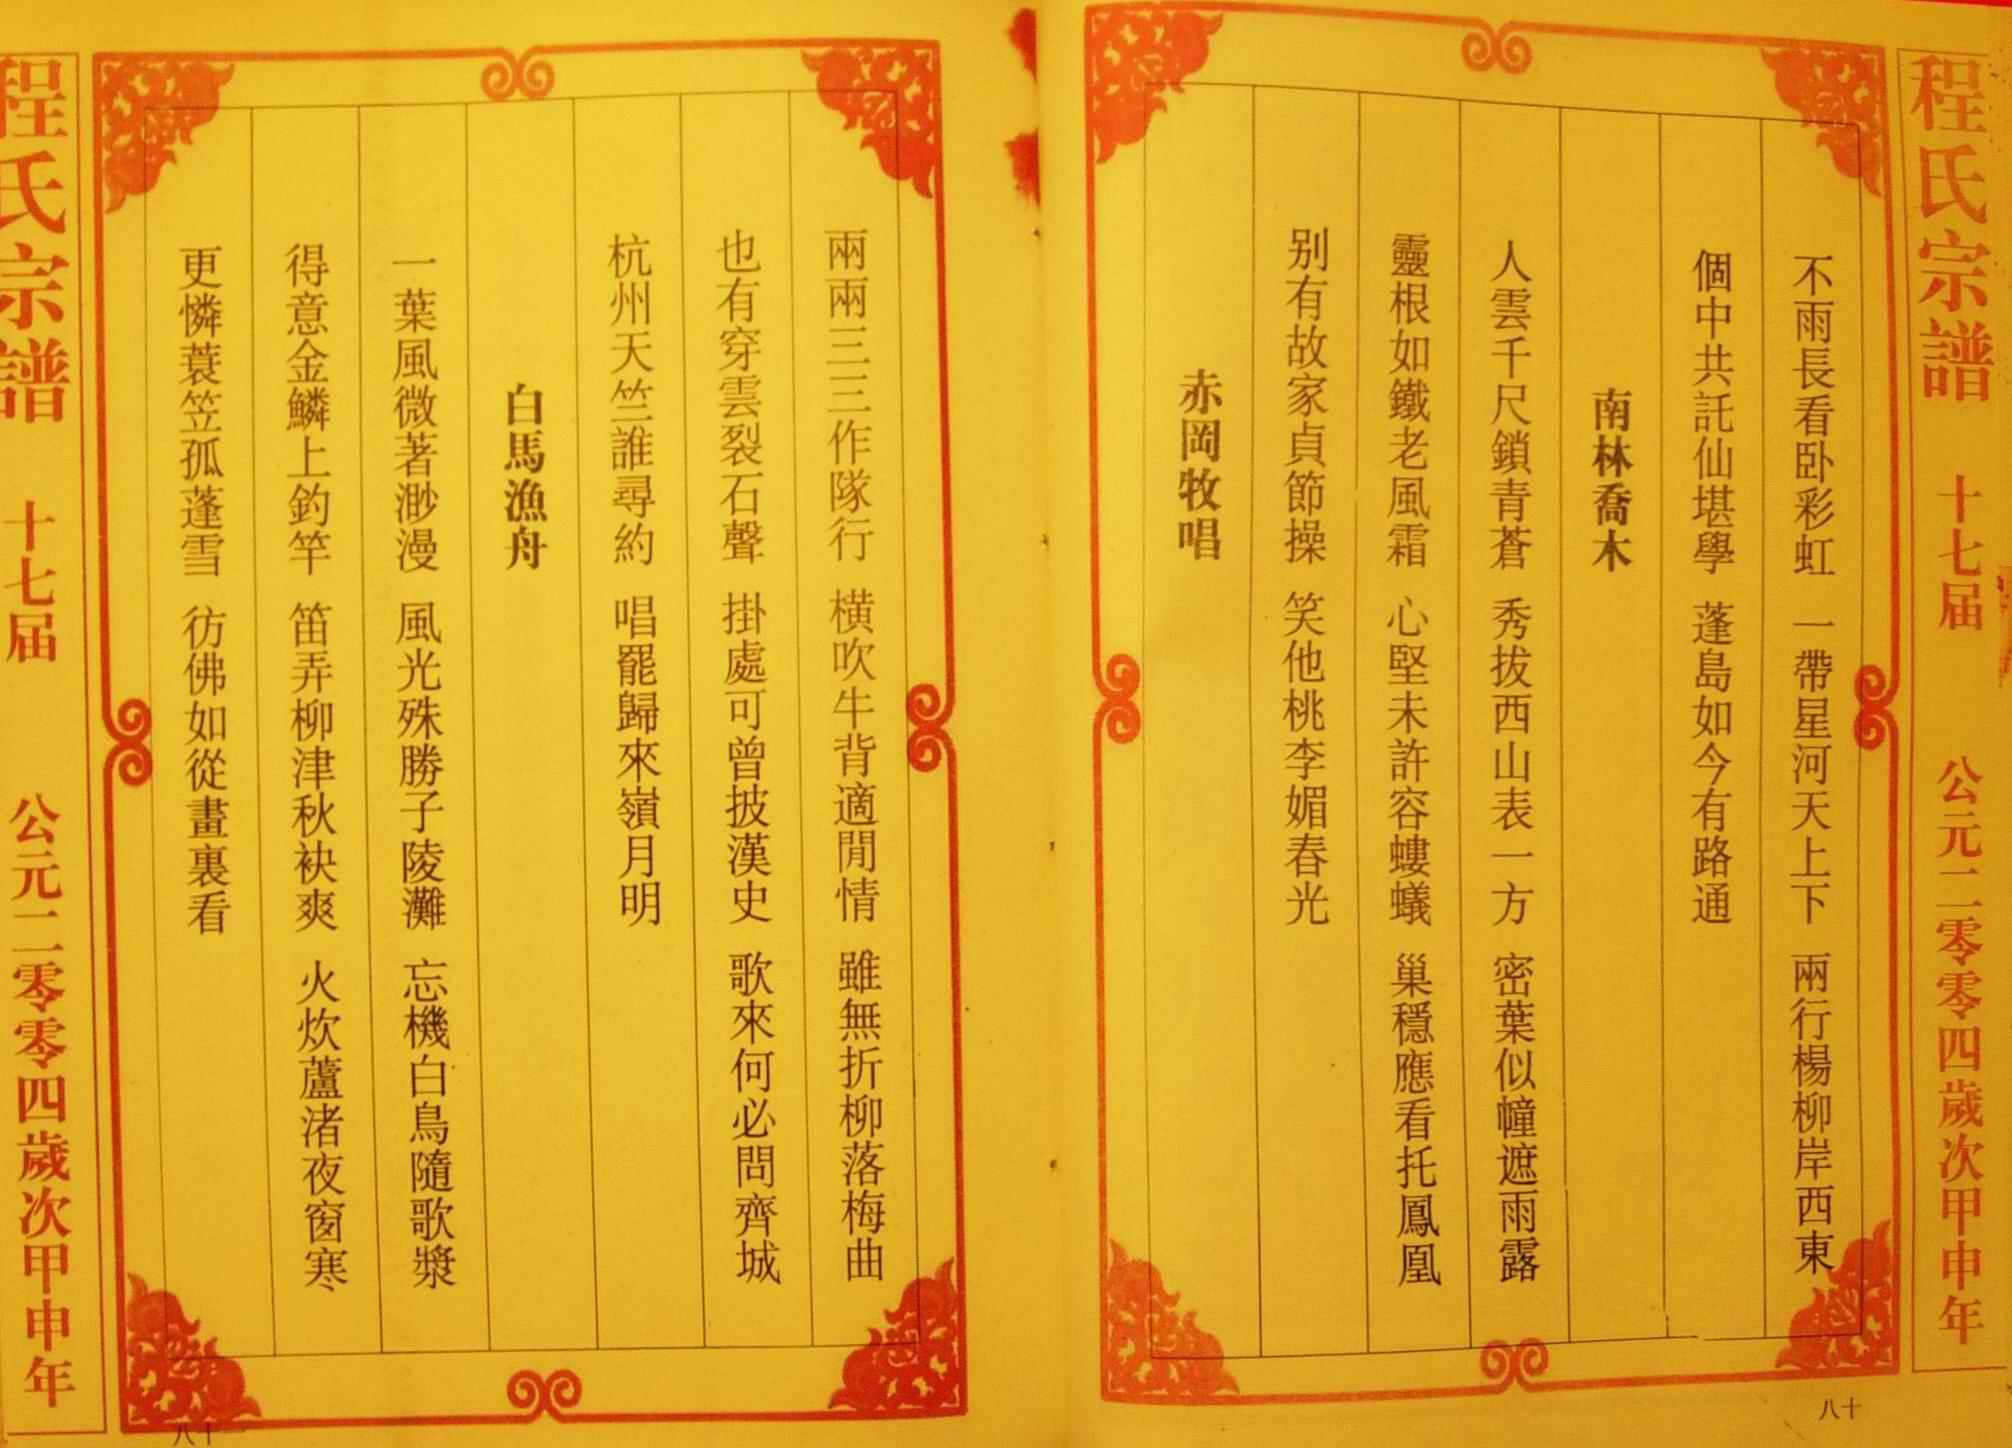 程氏宗譜 十七届 公元二零零四歲次甲申年
不雨長看卧彩虹 一帶星河天上下 兩行楊柳岸西東
個中共託仙堪學 蓬島如今有路通
南林喬木
人雲千尺鎖青蒼 秀拔西山表一方 密葉似幢遮雨露
靈根如鐵老風霜 心堅未許容螻蟻 巢穩應看托鳳凰
别有故家貞節操 笑他桃李媚春光
赤岡牧唱
八十
兩兩三三作隊行 横吹牛背適閒情 雖無折柳落梅曲
也有穿雲裂石聲 掛處可曾披漢史 歌來何必問齊城
杭州天竺誰尋約 唱罷歸來嶺月明
白馬漁舟
一葉風微著渺漫 風光殊勝子陵灘 忘機白鳥隨歌槳
得意金鱗上釣竿 笛弄柳津秋袂爽 火炊蘆渚夜窗寒
更憐蓑笠孤蓬雪 彷佛如從畫裏看
程氏宗譜 十七届 公元二零零四歲次甲申年
八十一